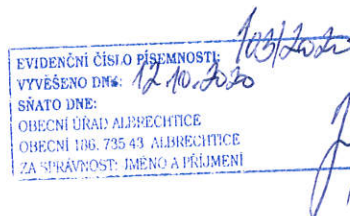 EVIDENČNÍ ČÍSLO PÍSEMNOSTI: 103/2020
VYVĚŠENO DNE: 12.10.2020
SŇATO DNE:
OBECNÍ ÚŘAD ALBRECHTICE
OBECNÍ 186, 735 43 ALBRECHTICE
ZA SPRÁVNOST: JMÉNO A PŘÍJMENÍ